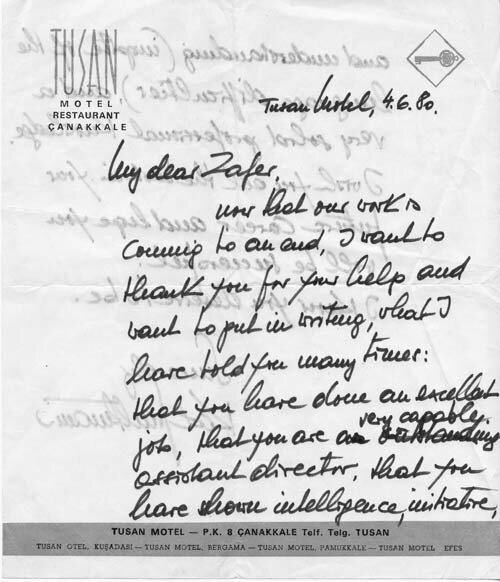 TUSAN
MOTEL
RESTAURANT
ÇANAKKALE
Tusan Motel, 4.6.80.
My dear Zafer,
now that our work is
coming to an end, I want to
thank you for your help and
want to put in writing, what I
have told you many times:
that you have done an excellent
very capable
job, that you are an outstanding
assistant director, that you
have shown intelligence, initiative,
TUSAN MOTEL — P.K. 8 ÇANAKKALE Telf. Telg. TUSAN
TUSAN OTEL, KUŞADASI — TUSAN MOTEL, BERGAMA — TUSAN MOTEL, PAMUKKALE — TUSAN MOTEL EFES